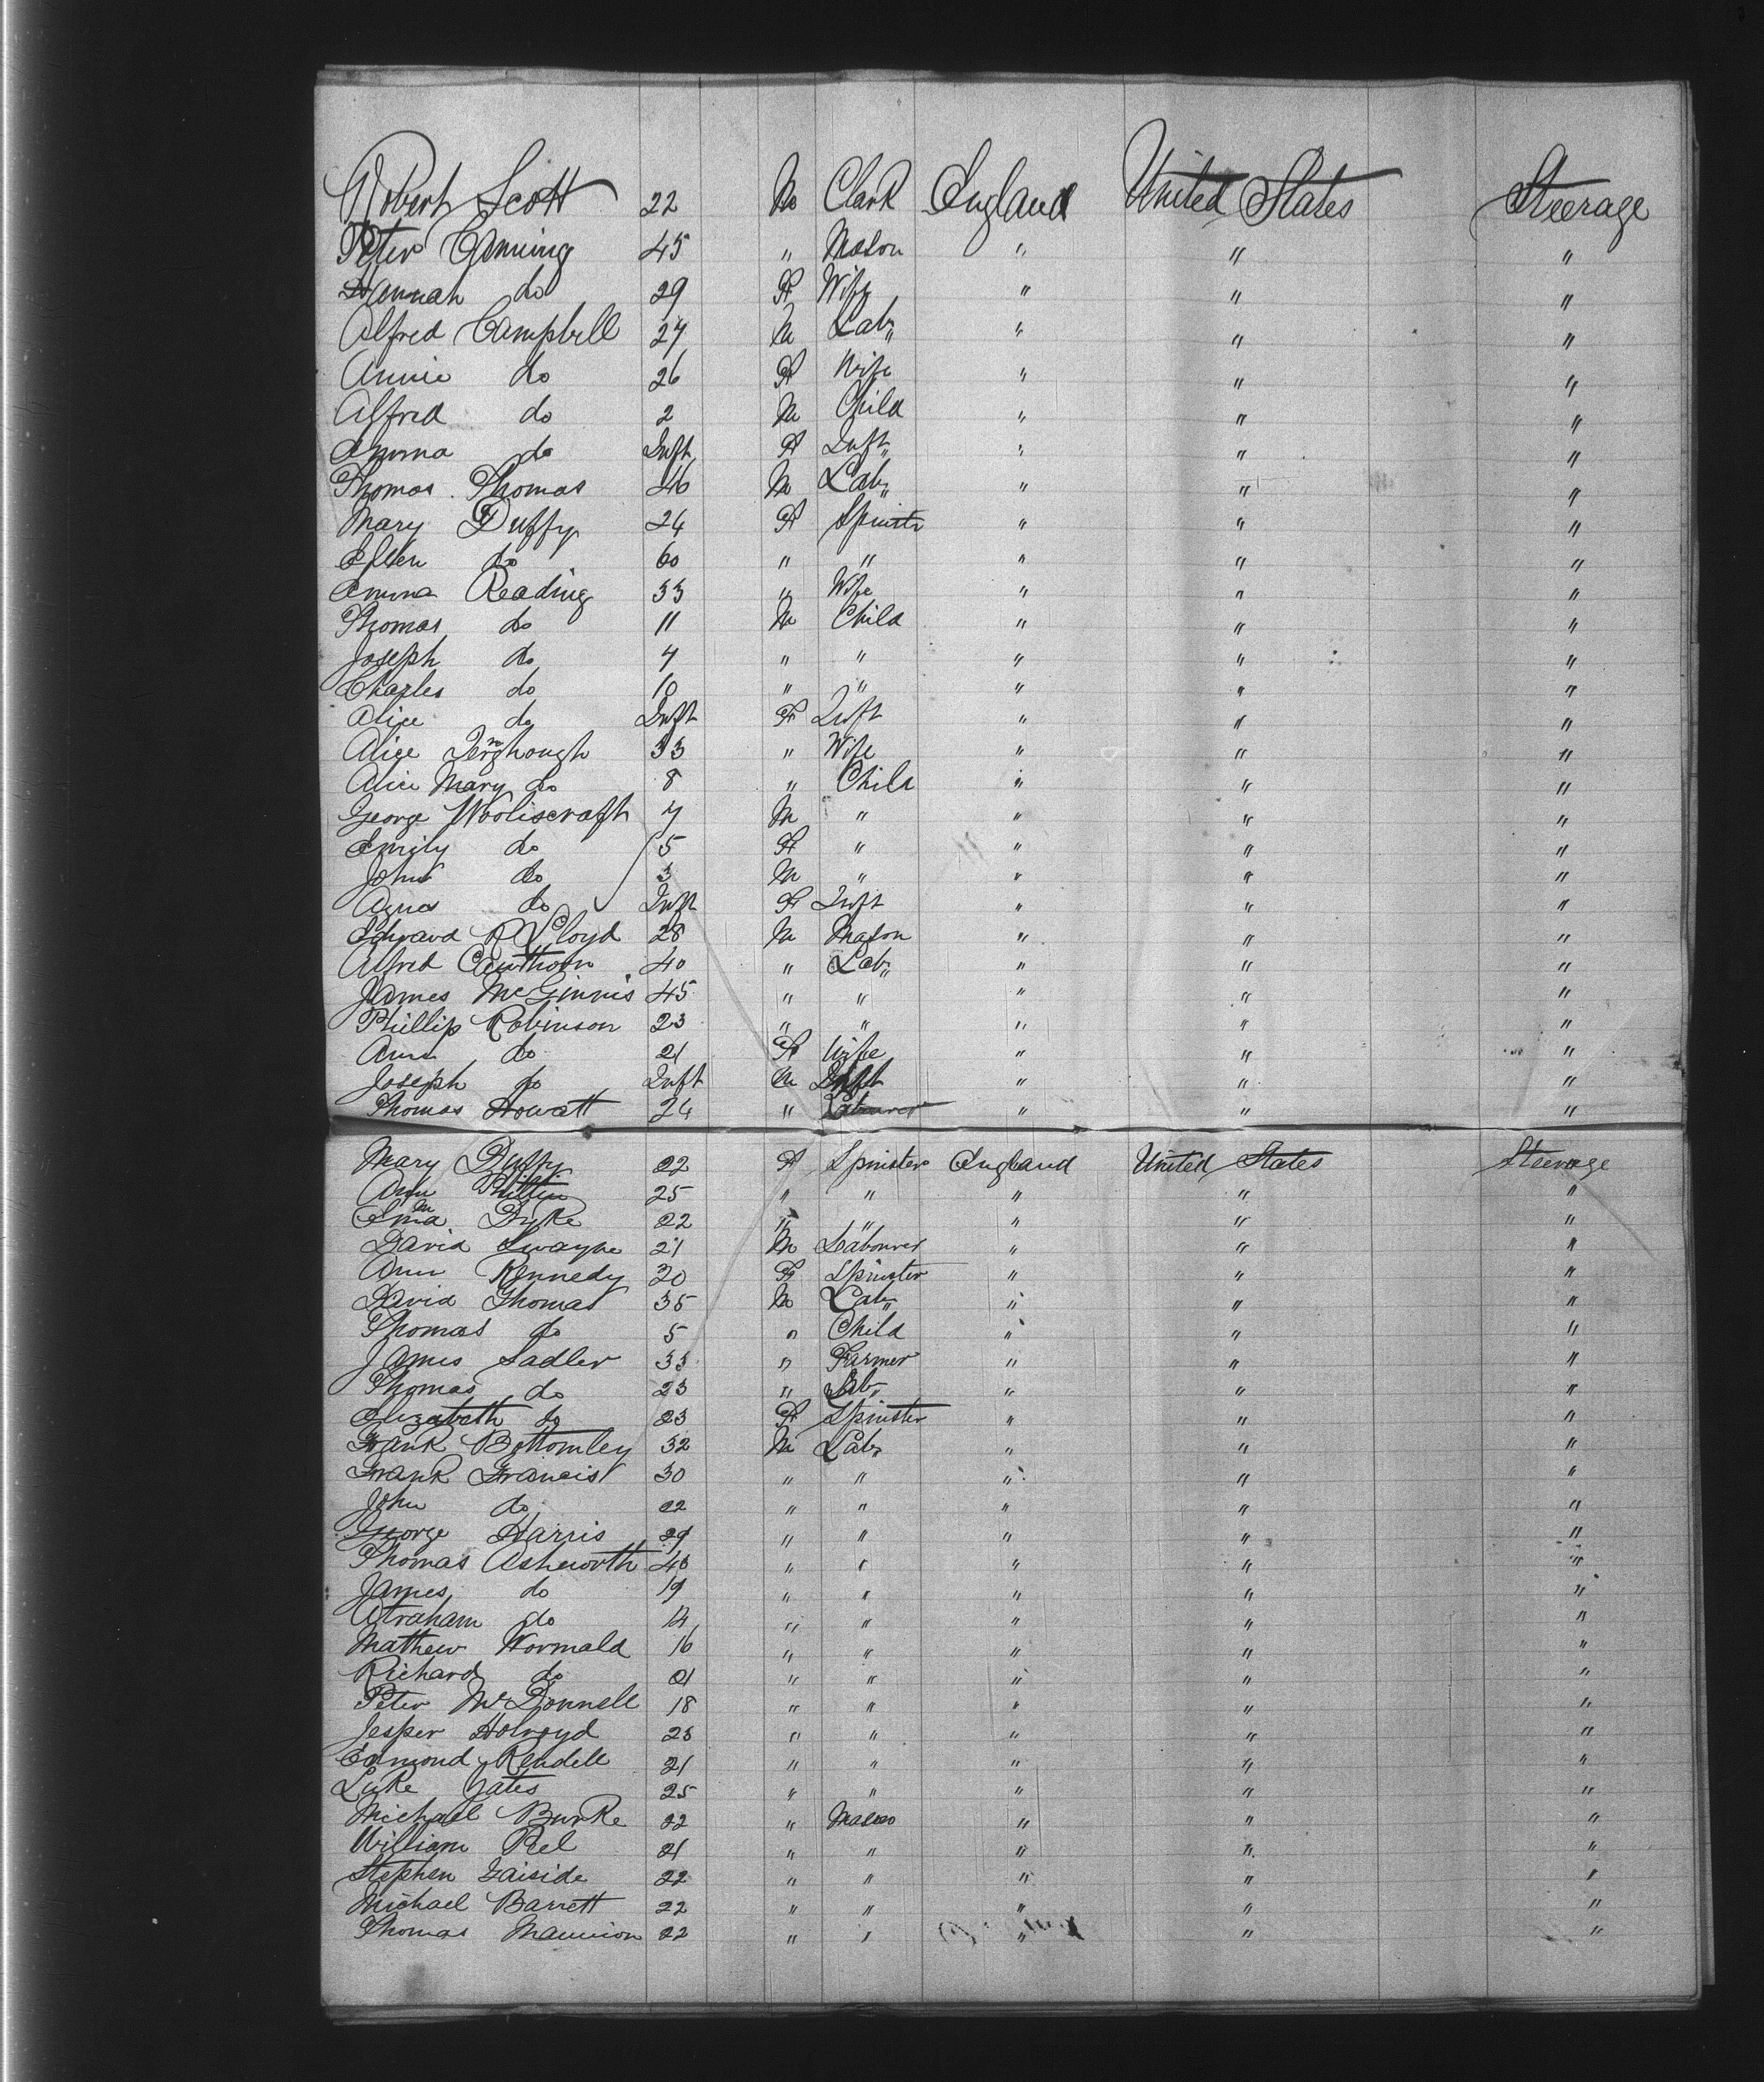 Robert Scott 22 M Clark England United States Steerage
Peter Canning 45 " Mason " " "
Hannah do 29 F Wife " " "
Alfred Campbell 27 M Lab " " "
Annie do 26 F Wife " " "
Alfred do 2 M Child " " "
Emma do Inft F Inft " " "
Thomas Thomas 46 M Lab " " "
Mary Duffy 24 F Spinstr " " "
Ellen do 60 " " " " "
Emma Reading 33 " Wife " " "
Thomas do 11 M Child " " "
Joseph do 7 " " " " "
Charles do 10 " " " " "
Alice do Inft F Inft " " "
Alice 33 " Wife " " "
Alice Mary do 8 " Child " " "
George Wooliscraft 7 M " " " "
Emily do 5 F " " " "
John do 3 M " " " "
Agnes do Inft F Inft " " "
Edward R Lloyd 28 M Mason " " "
Alfred Cawthorn 40 " Lab " " "
James McGinnis 45 " " " " "
Phillip Robinson 23 " " " " "
Ann do 21 F Wife " " "
Joseph do Inft M Inft " " "
Thomas Howatt 24 " Labourer " " "
Mary Duffy 22 F Spinster England United States Steerage
Ann 25 " " " " "
Emma Dyke 22 " " " " "
David Swayne 21 M Labourer " " "
Ann Kennedy 20 F Spinster " " "
David Thomas 35 M Lab " " "
Thomas do 5 " Child " " "
James Sadler 33 " Farmer " " "
Thomas do 23 " Lab " " "
Elizabeth do 23 F Spinster " " "
Frank Bottomley 32 M Lab " " "
Frank Francis 30 " " " " "
John do 22 " " " " "
George Harris 29 " " " " "
Thomas Ashworth 40 " " " " "
James do 19 " " " " "
Abraham do 14 " " " " "
Mathew Wormald 16 " " " " "
Richard do 21 " " " " "
Peter McDonnell 18 " " " " "
Jesper Holroyd 23 " " " " "
Edmond Rendell 21 " " " " "
Luke Yates 25 " " " " "
Michael Burke 22 " Mason " " "
William Peel 21 " " " " "
Stephen 22 " " " " "
Michael Barrett 22 " " " " "
Thomas Mannion 22 " " " " "